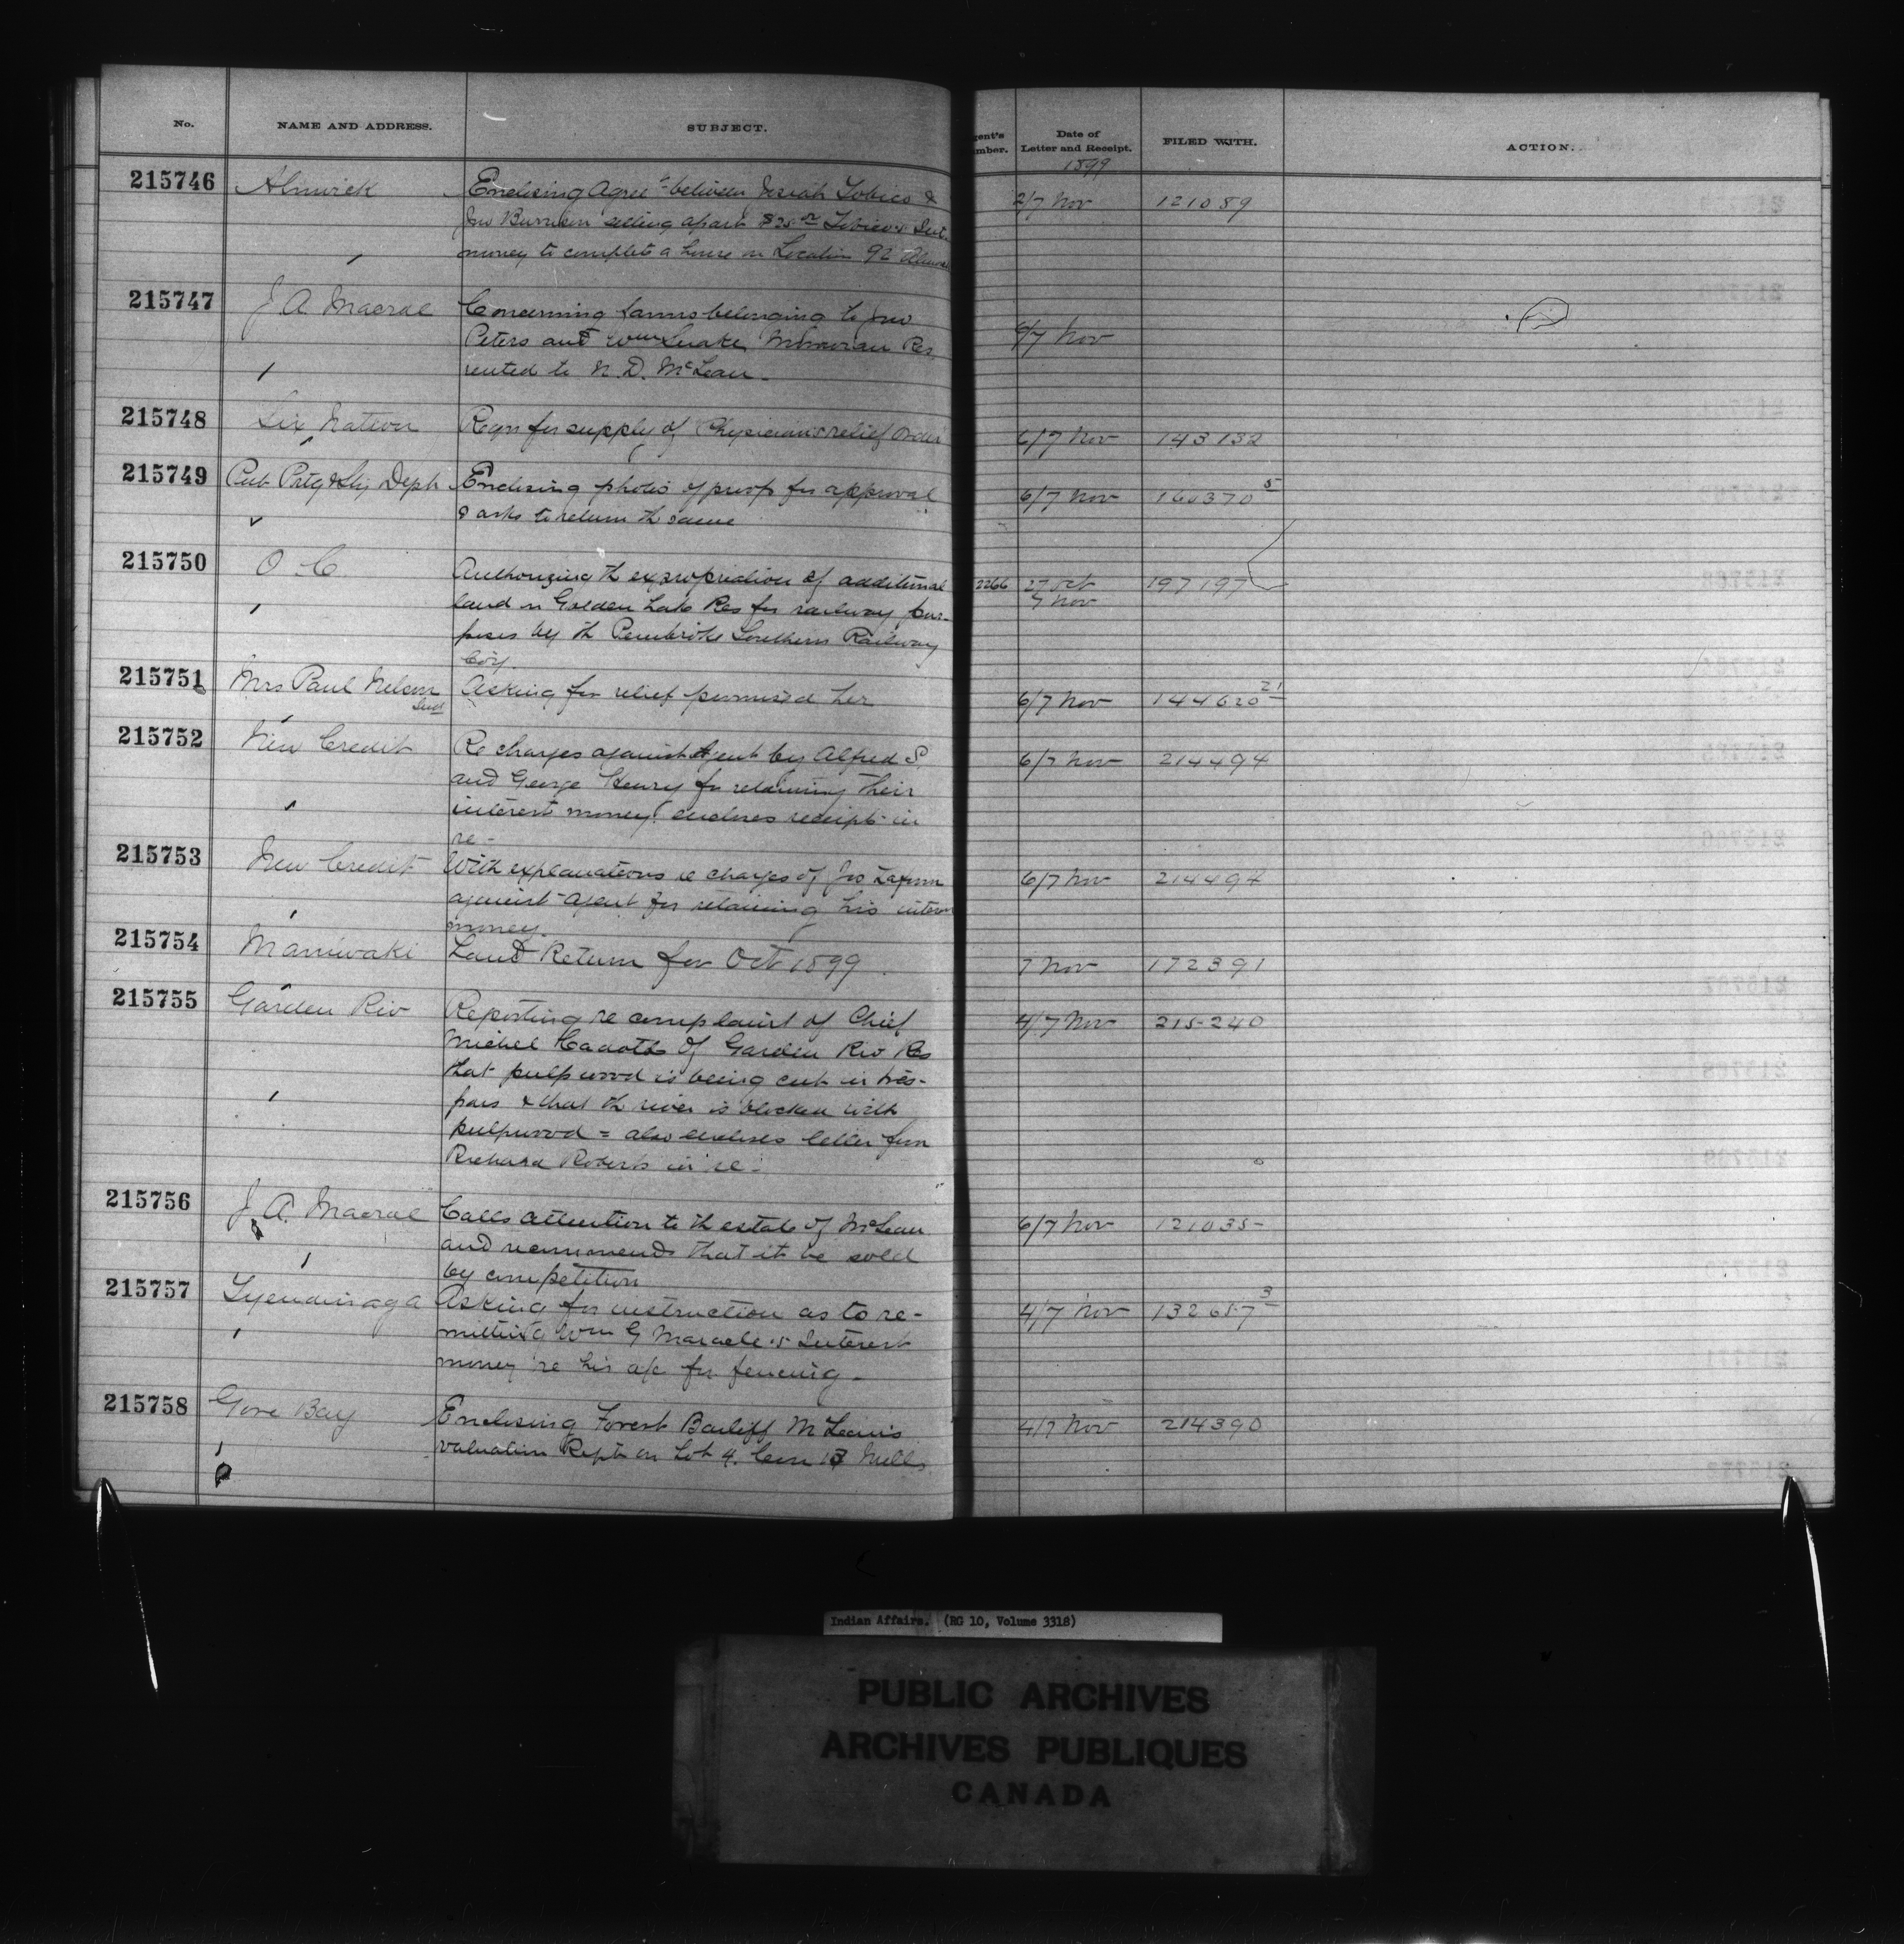 No. NAME AND ADDRESS. SUBJECT. gent's mber. Date of Letter and Receipt. FILED WITH. ACTION.
1899
215746 Alnwick Enclosing Agreet between Josiah Tobico & 2/7 Nov 121089
Jno setting apart $25.00 Tobico's Int.
money to complete a house on Location 92
215747 J. A. Macrae Concerning farms belonging to Jno
Peters and Wm Snake Moravian Res 6/7 Nov
rented to N. D. McLean.
215748 Six Nation Reqn for supply of Physicians relief Order 6/7 Nov 143132
215749 Pub Prtg & Sty Dept Enclosing photo of proof for approval 6/7 Nov 160370 5
& asks to return th same
215750 O. C. Authorizing th expropriation of additional 2266 27 Oct 197197
land in Golden Lake Res for railway pur- 7 Nov
poses by th Pembroke Southern Railway
Coy.
215751 Mrs Paul Nelson Asking for relief promised her 6/7 Nov 144620 21
215752 New Credit Re charges against Agent by Alfred S 6/7 Nov 214494
and George Henry for retaining their
interest money, encloses receipt in
re-
215753 New Credit With explanations re charges of Jno against Agent for retaining his interest 6/7 Nov 214494
money.
215754 Maniwaki Land Return for Oct 1899 7 Nov 172391
215755 Garden Riv Reporting re complaint of Chief 4/7 Nov 215240
Michel Cadotte of Garden Riv Res
that pulpwood is being cut in tres-
pass & that th river is blocked with
pulpwood = also encloses letter from
Richard Roberts in re -
215756 J. A. Macrae Calls attention to th estate of McLean 6/7 Nov 121035
and recommends that it be sold
by competition
215757 Tyendinaga Asking for instruction as to re- 4/7 Nov 132657 3
mitting Wm G Maracle's Interest
money re his a/c for fencing -
215758 Gore Bay Enclosing Forest Bailiff McLean's 4/7 Nov 214390
valuation Rept on Lot 4. Con 13 Mills
Indian Affairs. (RG 10, Volume 3318)
PUBLIC ARCHIVES
ARCHIVES PUBLIQUES
CANADA